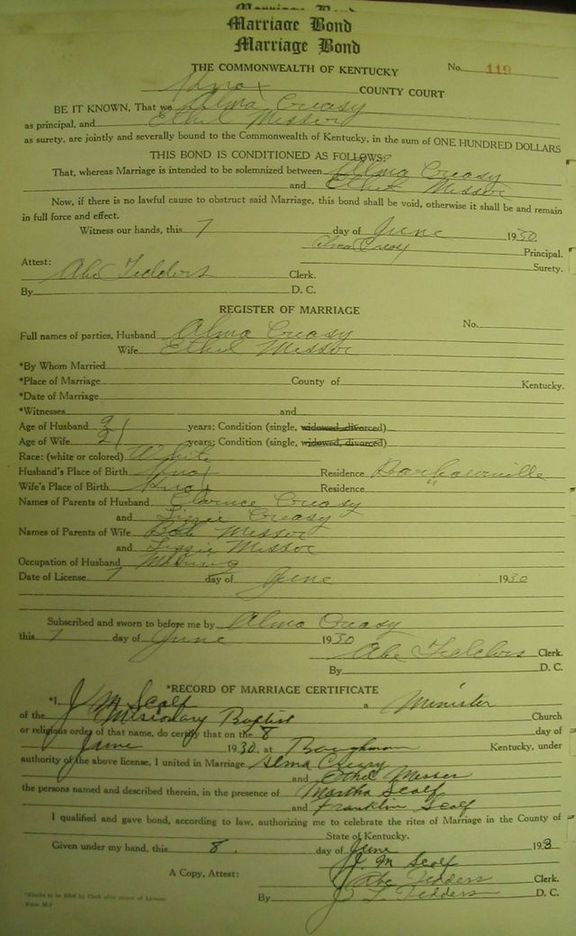 Marriage Bond
Marriage Bond
Marriage Bond
THE COMMONWEALTH OF KENTUCKY No. 119
Knox COUNTY COURT
BE IT KNOWN, That we Alma Creasy
as principal, and Ethel Messer
as surety, are jointly and severally bound to the Commonwealth of Kentucky, in the sum of ONE HUNDRED DOLLARS
THIS BOND IS CONDITIONED AS FOLLOWS:
That, whereas Marriage is intended to be solemnized between Alma Creasy
and Ethel Messer
Now, if there is no lawful cause to obstruct said Marriage, this bond shall be void, otherwise it shall be and remain
in full force and effect.
Witness our hands, this 7 day of June 1930
Alma Creasy Principal.
Surety.
Attest:
Abe Fedders Clerk.
By D. C.
REGISTER OF MARRIAGE
No.
Full names of parties, Husband Alma Creasy
Wife Ethel Messer
*By Whom Married
*Place of Marriage County of Kentucky.
*Date of Marriage
*Witnesses and
Age of Husband years; Condition (single, widowed, divorced)
Age of Wife 21 years; Condition (single, widowed, divorced)
Race: (white or colored) White
Husband's Place of Birth Knox Residence Barbourville
Wife's Place of Birth Knox Residence "
Names of Parents of Husband Clarence Creasy
and Lizzie Creasy
Names of Parents of Wife Bob Messer
and Lizzie Messer
Occupation of Husband Mining
Date of License 7 day of June 1930
Subscribed and sworn to before me by Alma Creasy
this 7 day of June 1930
Abe Fedders Clerk.
By D. C.
*RECORD OF MARRIAGE CERTIFICATE
*I, J M Scalf a Minister
of the Missionary Baptist Church
or religious order of that name, do certify that on the 8 day of
June 1930, at Baughman Kentucky, under
authority of the above license, I united in Marriage Alma Creasy
and Ethel Messer
the persons named and described therein, in the presence of Martha Scalf
and Franklin Scalf
I qualified and gave bond, according to law, authorizing me to celebrate the rites of Marriage in the County of
State of Kentucky.
Given under my hand, this 8. day of June 193
J. M Scalf
A Copy, Attest: Abe Fedders Clerk.
By J L Fedders D. C.